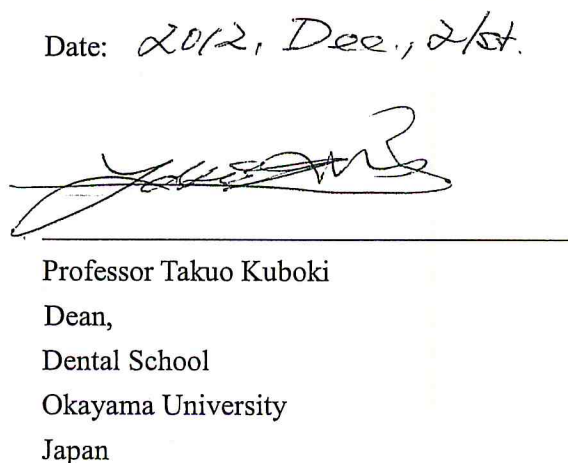 Date: 2012, Dec., 21st.
Professor Takuo Kuboki
Dean,
Dental School
Okayama University
Japan